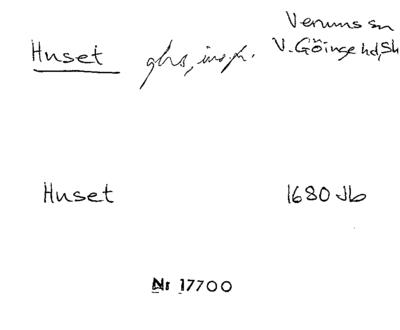 Huset gård, insk. Verums sn
V. Göinge hd, Sk
Huset 1680 Jb
Nr 17700